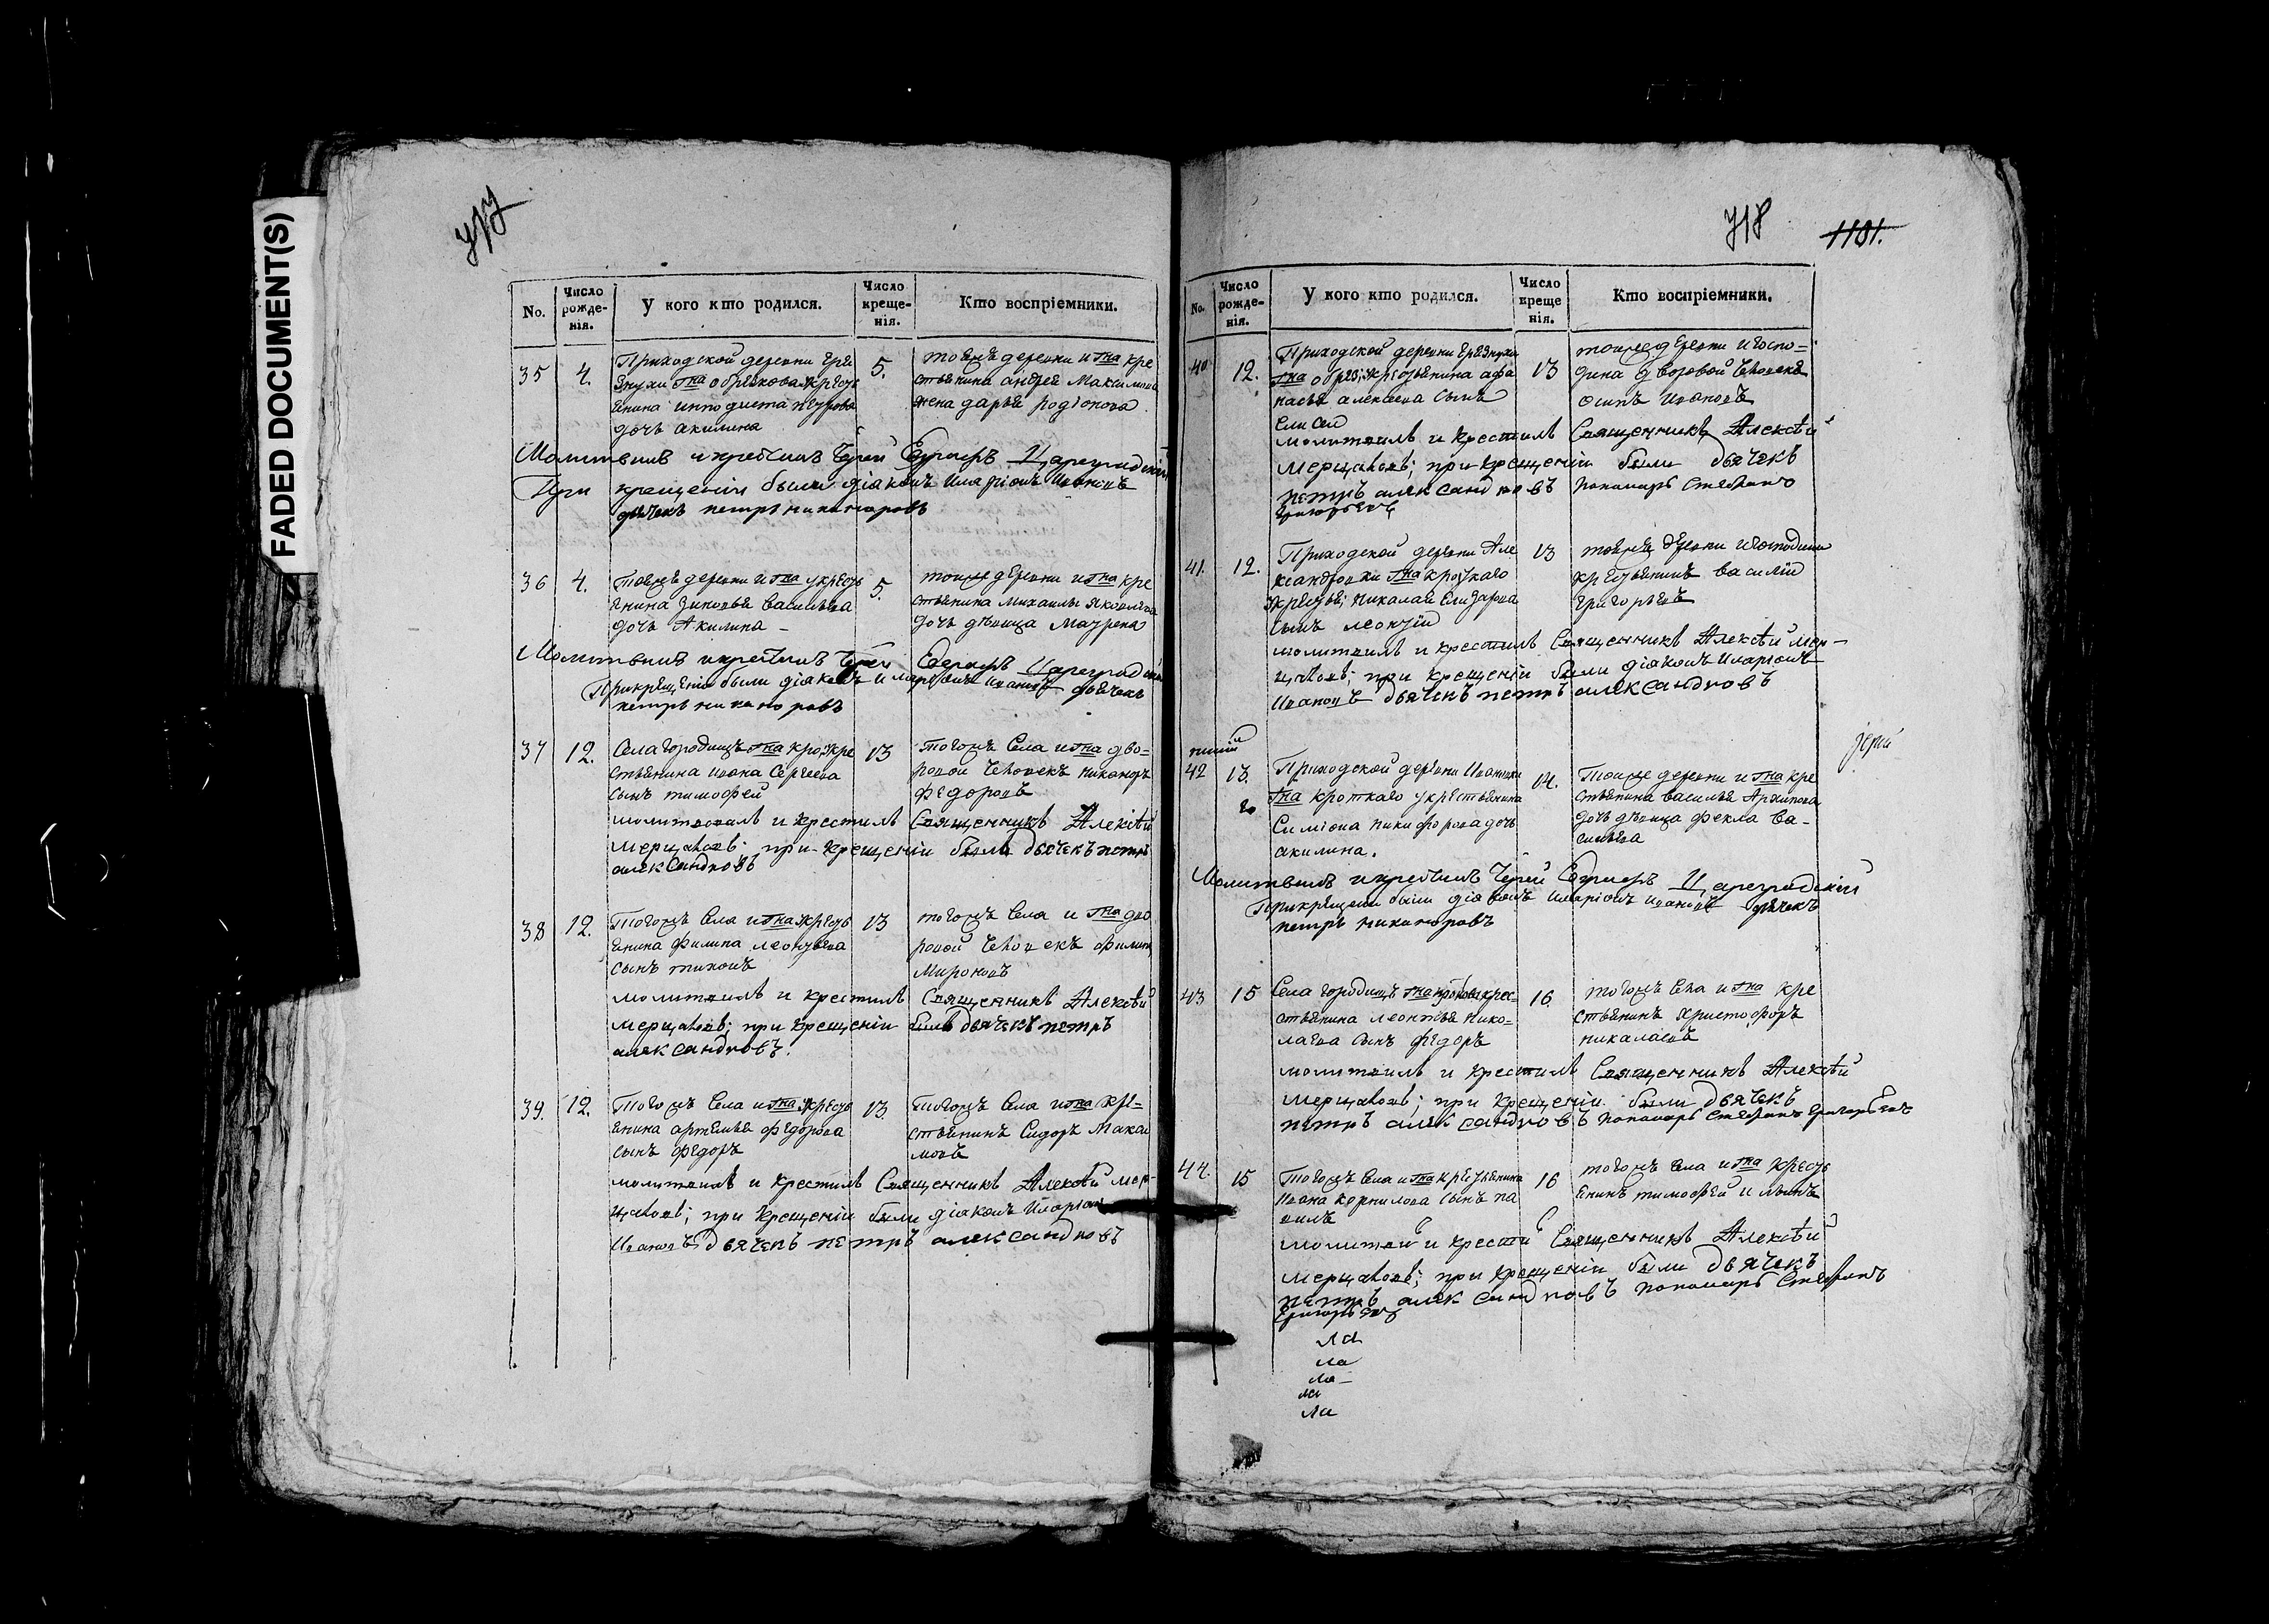 FADED DOCUMENT(S)
717
No.
Число рожде-нія.
У кого кто родился.
Число креще-нія.
Кто воспріемники.
35 4. Приходской деревни Гря
знухи гна обрезкова укрестья
нина ипполита петрова
дочь акилина
5. тоежъ деревни и гна кре
стьянина андрея Максимова
жена дарья родіонова
Молитвилъ и крестилъ Іерей Цареградскій
При крещеніи были діаконъ иларіонъ ивановъ
дьячекъ петръ никаноровъ
36 4. Тоежъ деревни и гна укресть
янина зиновья васильева
дочь Акилина –
5. тоиже деревни и гна кре
стьянина михаилы яковлева
дочь девица Маѵрена
Молитвилъ и крестилъ Іерей Цареградскій
При крещеніи были діаконъ иларіонъ ивановъ дьячекъ
петръ никаноровъ
37 12. Села городищъ гна кро: укре
стьянина ивана Сергеева
сынъ тимофей
13 Тогожъ Села и гна дво=
ровой человекъ никаноръ
федоровъ
молитвовалъ и крестилъ Священникъ Алексѣй
Мерцаловъ; при крещеніи были дьячекъ петръ
александровъ
38 12. Тогожъ Села и гна укресть
янина филипа леонтьева
сынъ тихонъ
13 тогожъ Села и гна дво
ровой человекъ филипъ
Мироновъ
молитвилъ и крестилъ Священникъ Алексѣй
Мерцаловъ; при крещеніи былъ дьячекъ петръ
александровъ.
39. 12. Тогожъ Села и гна укресть
янина артемья федорова
сынъ федоръ
13 Тогожъ Села и гна кре=
стьянинъ Сидоръ Макси
мовъ
молитвилъ и крестилъ Священникъ Алексѣй Мер-
цаловъ; при крещеніи были діаконъ Иларіонъ
Ивановъ дьячекъ петръ александровъ
718 1181.
No.
Число рожде-нія.
У кого кто родился.
Число креще нія.
Кто воспріемники.
40 12. Приходской деревни Грязнухи
гна обрез: укрестьянина афа
насья алексеева сынъ
Елисей
13 тоиже деревни и госпо=
дина дворовой человекъ
осипъ Ивановъ
молитвилъ и крестилъ Священникъ Алексѣй
Мерцаловъ; при крещеніи были дьячекъ
петръ александровъ пономарь Стефанъ
Григорьевъ
41. 12. Приходской деревни Але
ксандровки гна кроткаго
укрестья: николая Елизарова
сынъ леонтій
13 тоежъ деревни и господина
крестьянинъ василій
Григорьевъ
молитвилъ и крестилъ Священникъ Алексѣй Мер–
цаловъ; при крещеніи были діаконъ Иларіонъ
Ивановъ дьячекъ петръ александровъ
іерей
42 13. Приходской деревни Ивановки
го гна кроткаго укрестьянина
Симіона никифорова дочь
акилина.
14. Тоиже деревни и гна кре
стьянина василья Архипова
дочь девица фекла ва–
сильева
Молитвилъ и крестилъ Іерей Цареградскій
При крещеніи были діаконъ иларіонъ ивановъ дьячекъ
петръ никаноровъ
43 15 Села городищъ гна крес-
стьянина леонтья нико–
лаева сынъ федоръ
16. тогожъ села и гна кре
стьянинъ христофоръ
николаевъ
молитвилъ и крестилъ Священникъ Алексѣй
Мерцаловъ; при крещеніи были дьячекъ
петръ александровъ пономарь Стефанъ Григорьевъ
44. 15 Тогожъ Села и гна крестьянина
Ивана корнилова сынъ па
вилъ
16 тогожъ села и гна кресть
янинъ тимофей ильинъ
молитви и крести Священникъ Алексѣй
Мерцаловъ; при крещеніи были дьячекъ
петръ александровъ пономарь Стефанъ
Григорьевъ
ла
ла
ла–
ла
ла